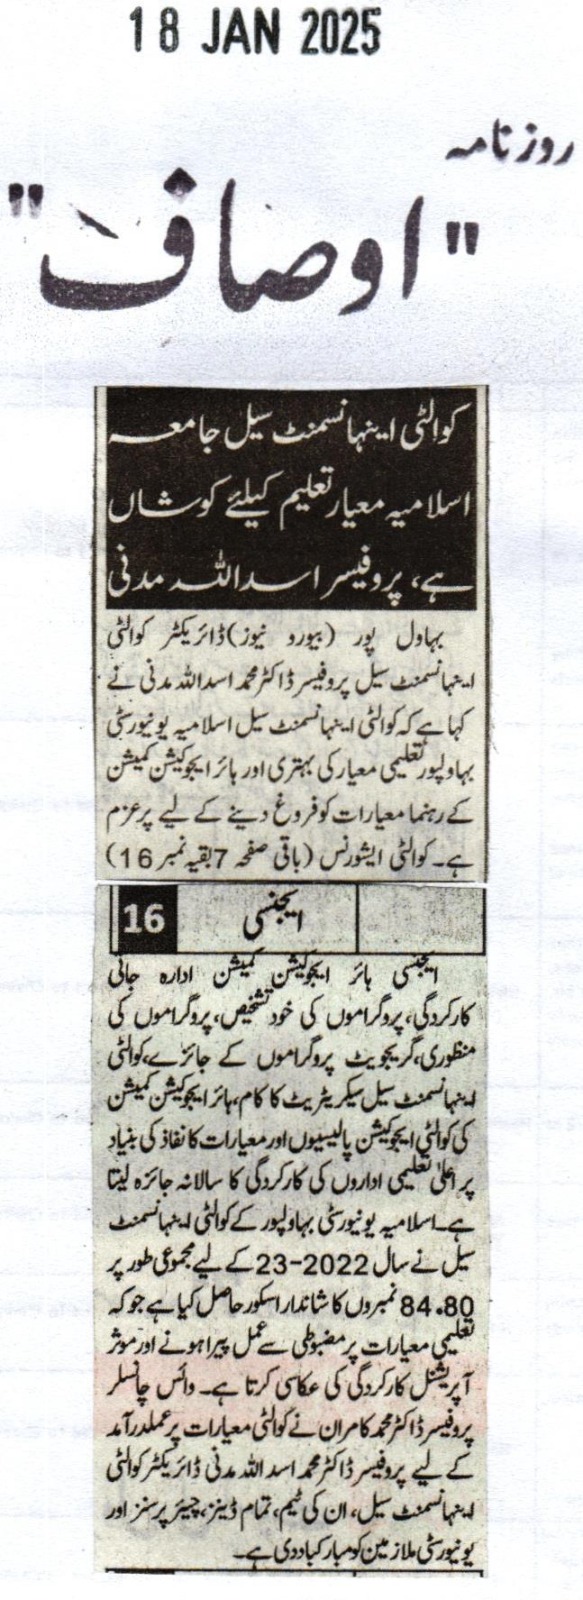 18 JAN 2025
روزنامہ
"اوصاف"
کوالٹی اینہانسمنٹ سیل جامعہ
اسلامیہ معیار تعلیم کیلئے کوشاں
ہے، پروفیسر اسد اللہ مدنی
بہاول پور (بیورو نیوز) ڈائریکٹر کوالٹی
اینہانسمنٹ سیل پروفیسر ڈاکٹر محمد اسد اللہ مدنی نے
کہا ہے کہ کوالٹی اینہانسمنٹ سیل اسلامیہ یونیورسٹی
بہاولپور تعلیمی معیار کی بہتری اور ہائر ایجوکیشن کمیشن
کے رہنما معیارات کو فروغ دینے کے لیے پرعزم
ہے۔ کوالٹی ایشورنس (باقی صفحہ 7 بقیہ نمبر 16)
16 ایجنسی
ایجنسی ہائر ایجوکیشن کمیشن ادارہ جاتی
کارکردگی، پروگراموں کی خود تشخیص، پروگراموں کی
منظوری، گریجویٹ پروگراموں کے جائزے، کوالٹی
اینہانسمنٹ سیل سیکریٹریٹ کا کام، ہائر ایجوکیشن کمیشن
کی کوالٹی ایجوکیشن پالیسیوں اور معیارات کا نفاذ کی بنیاد
پر اعلیٰ تعلیمی اداروں کی کارکردگی کا سالانہ جائزہ لیتا
ہے۔ اسلامیہ یونیورسٹی بہاولپور کے کوالٹی اینہانسمنٹ
سیل نے سال 2022-23 کے لیے مجموعی طور پر
84.80 نمبروں کا شاندار اسکور حاصل کیا ہے جو کہ
تعلیمی معیارات پر مضبوطی سے عمل پیرا ہونے اور موثر
آپریشنل کارکردگی کی عکاسی کرتا ہے۔ وائس چانسلر
پروفیسر ڈاکٹر محمد کامران نے کوالٹی معیارات پر عملدرآمد
کے لیے پروفیسر ڈاکٹر محمد اسد اللہ مدنی ڈائریکٹر کوالٹی
اینہانسمنٹ سیل، ان کی ٹیم، تمام ڈینز، چیئر پرسنز اور
یونیورسٹی ملازمین کو مبارکباد دی ہے۔